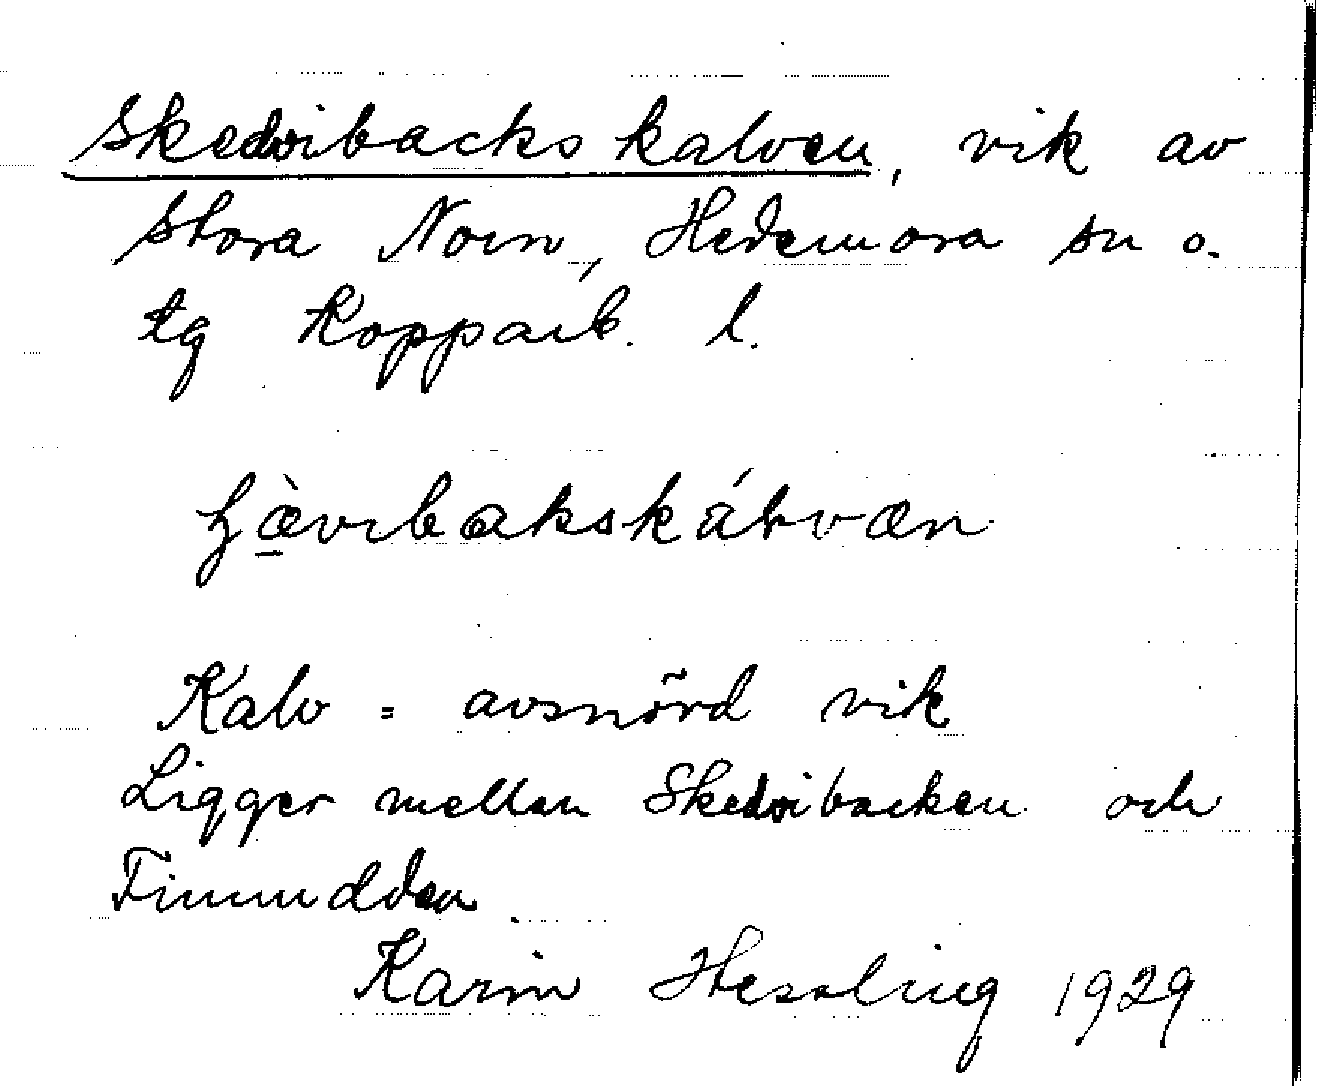 Skedvibackskalven, vik av
Stora Norn, Hedemora sn o.
tg Kopparb. l.
ɧæ̀vıbakskáɫvæn
Kalv = avsnörd vik
Ligger mellan Skedvibacken och
Finnudden.
Karin Hessling 1929